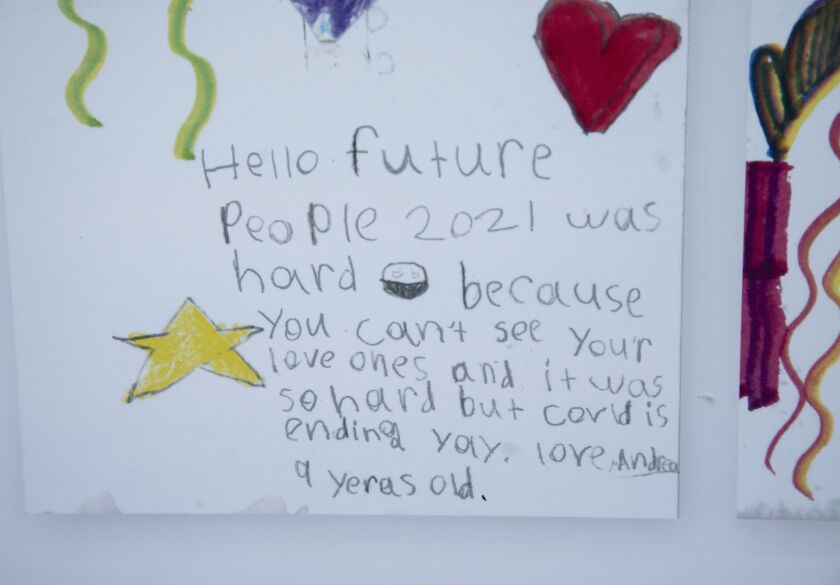 Hello future
People 2021 was
hard because
You can't see Your
love ones and it was
so hard but covid is
ending yay. love, Andrea
9 yeras old.